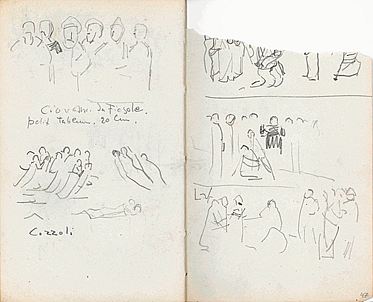 Giovanni da Fiesole.
petit tableau. 20 cm.
Cozzoli
47